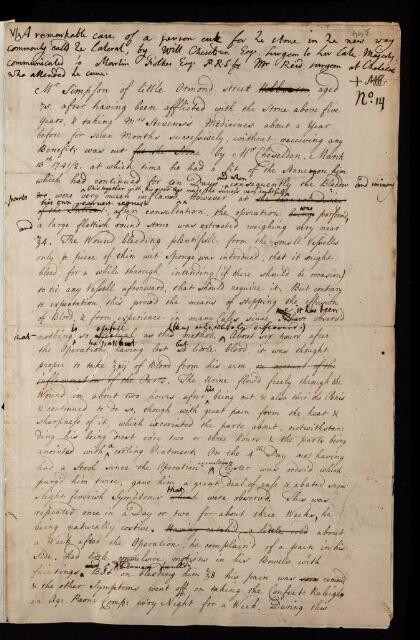 A remarkable case of a person cutt for the stone in the new way
commonly calld the Lateral, by Will Cheselden Esqr. Surgeon to her late Majesty.
communicated to Martin Folkes Esqr. P.R.S. by Mr Reid surgeon at Chelsea
who attended the cure.
No. 14
Mr. Simpson of little Ormond street aged
75, after having been afflicted with the Stone above five
Years, & taking Mrs Stevens's Medicines about a Year
before for seven Months successively, without receiving any
Benefit; was cut by Mr. Cheselden, March
18th 1741/2, at which time he had a fit of the Stone upon him
which had continued for ten Days & consequently the Bladder and urinary
parts were very much inflamed, However at
his own request
after consultation, the operation was perform'd
and a large flattish round Stone was extracted weighing very near
℥4. The Wound bleeding plentifully from the small Vessels
only a piece of thin wet Sponge was introduced, that it might
bleed for a while through intending (if there should be occasion)
to tie any Vessel afterward, that should require it. But contrary
to expectation this proved the means of stopping the effusion
of Blood, & from experience in many Cases since it has been observd
that nothing is as this method. About six hours after
the Operation, the patient having lost but little blood it was thought
proper to take of Blood from his arm,
The Urine flowd freely through the
Wound in about two hours after his being cut & also thro' his Penis
& continued to do so, though with great pain from the heat &
sharpness of it, which excoriated the parts about, notwithstan-
ding his being drest every two or three hours & the parts being
anointed with a cooling Ointment. On the 4th Day not having
had a Stool since the Operation a Clyster was orderd which
purged him twice, gave him a great deal of ease & abated some
slight feverish Symptoms that were observed. This was
repeated once in a Day or two for about three Weeks, he
being naturally costive. about
a Week after the Operation, he complained of a pain in his
Side, had little convulsive motions in his Bowels with
faintings. But on bleeding him ℥8 his pain was
& the other Symptoms went off on taking the Confect: Raleigh:
in Aq: Paeon: Comp: every Night for a Week. During this